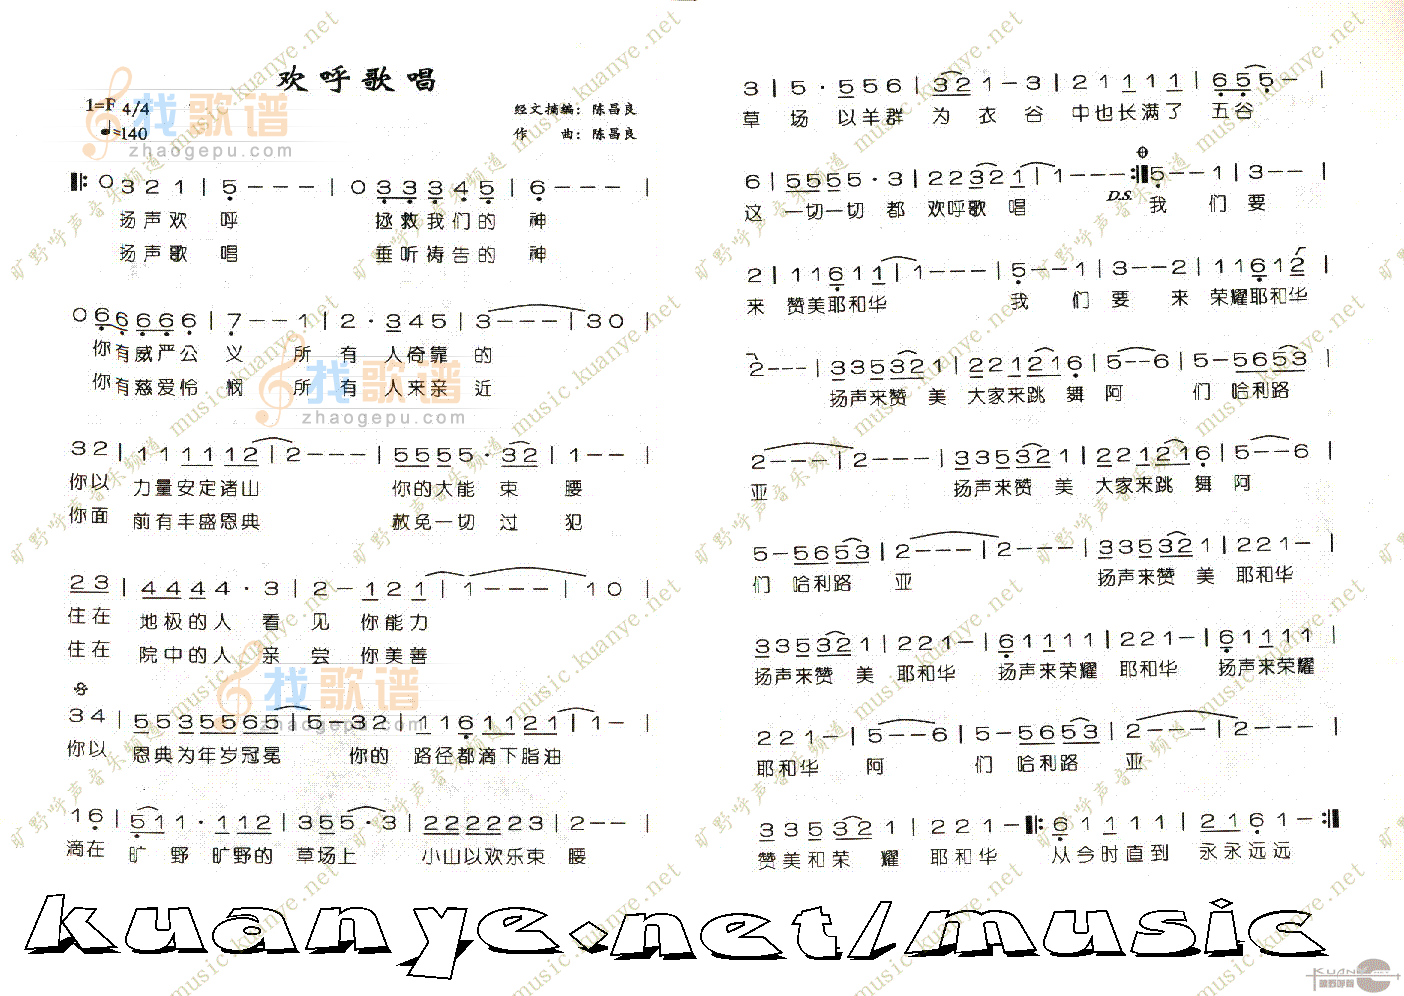 欢呼歌唱
1=F 4/4
♩=140
经文摘编：陈昌良
作 曲：陈昌良
找歌谱
zhaogepu.com
‖: 0 3 2 1 | 5 - - - | 0 3 3 3 4 5 | 6 - - - |
扬声欢 呼 拯救我们的 神
扬声歌 唱 垂听祷告的 神
0 6 6 6 6 6 | 7 - - 1 | 2 · 3 4 5 | 3 - - - | 3 0
你有威严公 义 所 有 人倚靠 的
你有慈爱怜 悯 所 有 人来亲 近
找歌谱
zhaogepu.com
3 2 | 1 1 1 1 1 2 | 2 - - - | 5 5 5 5 · 3 2 | 1 - - |
你以 力量安定诸山 你的大能 束 腰
你面 前有丰盛恩典 赦免一切 过 犯
2 3 | 4 4 4 4 · 3 | 2 - 1 2 1 | 1 - - - | 1 0 |
住在 地极的人 看 见 你能力
住在 院中的人 亲 尝 你美善
找歌谱
zhaogepu.com
3 4 | 5 5 3 5 5 6 5 | 5 - 3 2 | 1 1 6 1 1 2 1 | 1 - |
你以 恩典为年岁冠冕 你的 路径都滴下脂油
1 6 | 5 1 1 · 1 1 2 | 3 5 5 · 3 | 2 2 2 2 2 2 3 | 2 - - |
滴在 旷 野 旷野的 草场上 小山以欢乐束 腰
3 | 5 · 5 5 6 | 3 2 1 - 3 | 2 1 1 1 1 | 6 5 5 - |
草 场 以羊群 为 衣 谷 中也长满了 五谷
6 | 5 5 5 5 · 3 | 2 2 3 2 1 | 1 - - - :‖ 5 - - 1 | 3 - - |
D.S.
这 一切一切 都 欢呼歌 唱 我 们 要
2 | 1 1 6 1 1 | 1 - - - | 5 - - 1 | 3 - - 2 | 1 1 6 1 2 |
来 赞美耶和华 我 们 要 来 荣耀耶和华
2 - - - | 3 3 5 3 2 1 | 2 2 1 2 1 6 | 5 - - 6 | 5 - 5 6 5 3 |
扬声来赞 美 大家来跳 舞 阿 们 哈利路
2 - - - | 2 - - - | 3 3 5 3 2 1 | 2 2 1 2 1 6 | 5 - - 6 |
亚 扬声来赞 美 大家来跳 舞 阿
5 - 5 6 5 3 | 2 - - - | 2 - - - | 3 3 5 3 2 1 | 2 2 1 - |
们 哈利路 亚 扬声来赞 美 耶和华
3 3 5 3 2 1 | 2 2 1 - | 6 1 1 1 1 | 2 2 1 - | 6 1 1 1 1 |
扬声来赞 美 耶和华 扬声来荣耀 耶和华 扬声来荣耀
2 2 1 - | 5 - - 6 | 5 - 5 6 5 3 | 2 - - - | 2 - - - |
耶和华 阿 们 哈利路 亚
3 3 5 3 2 1 | 2 2 1 - ‖: 6 1 1 1 1 | 2 1 6 1 - :‖
赞美和荣 耀 耶和华 从今时直到 永永远远
kuanye.net/music
旷野呼声音乐频道 music.kuanye.net